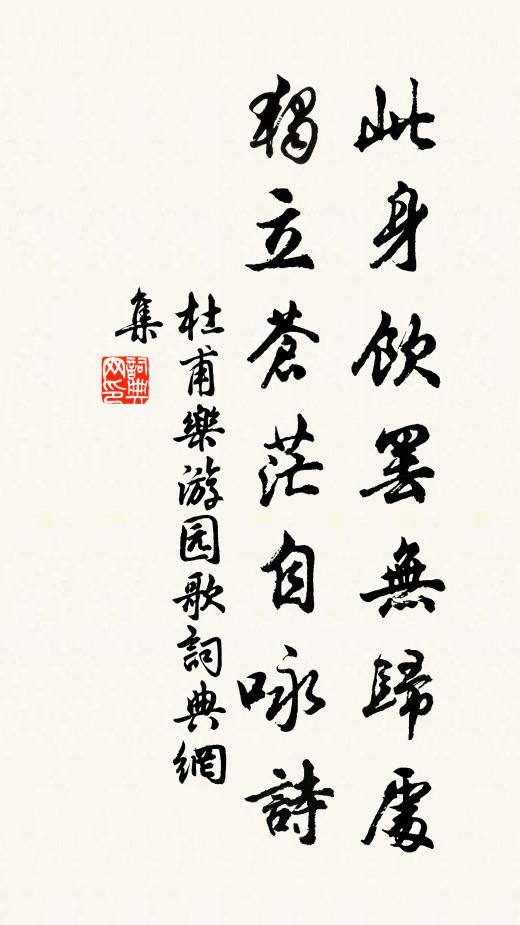 此身飲罷無歸處
獨立蒼茫自咏詩
杜甫樂游园歌詞典網
集
詞典
网印